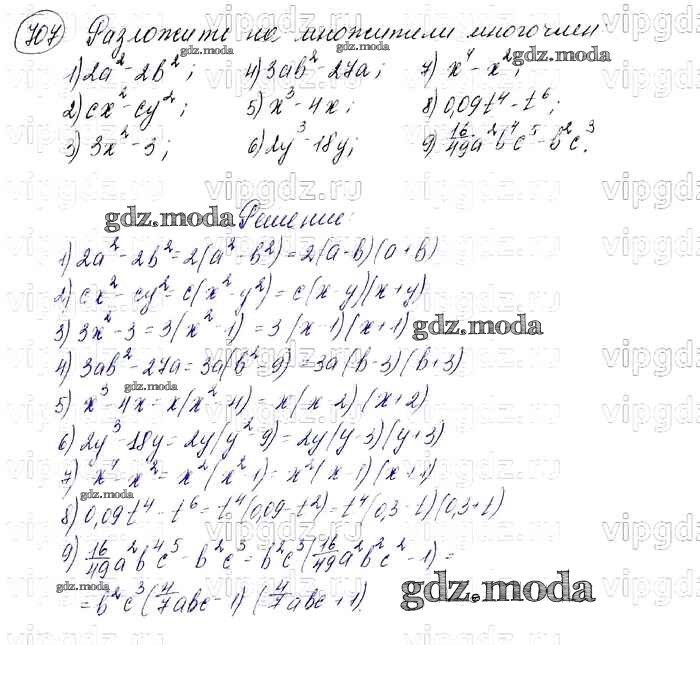 707 Разложите на множители многочлен
1) 2a² - 2b²; 4) 3ab² - 27a; 7) x⁴ - x²;
2) cx² - cy²; 5) x³ - 4x; 8) 0,09t⁴ - t⁶;
3) 3x² - 3; 6) 2y³ - 18y; 9) 16/49 a²b⁴c⁵ - b²c³.
gdz.moda Решение:
1) 2a² - 2b² = 2(a² - b²) = 2(a - b)(a + b)
2) cx² - cy² = c(x² - y²) = c(x - y)(x + y)
3) 3x² - 3 = 3(x² - 1) = 3(x - 1)(x + 1) gdz.moda
4) 3ab² - 27a = 3a(b² - 9) = 3a(b - 3)(b + 3)
5) x³ - 4x = x(x² - 4) = x(x - 2)(x + 2)
6) 2y³ - 18y = 2y(y² - 9) = 2y(y - 3)(y + 3)
7) x⁴ - x² = x²(x² - 1) = x²(x - 1)(x + 1)
8) 0,09t⁴ - t⁶ = t⁴(0,09 - t²) = t⁴(0,3 - t)(0,3 + t)
9) 16/49 a²b⁴c⁵ - b²c³ = b²c³(16/49 a²b²c² - 1) =
= b²c³(4/7 abc - 1)(4/7 abc + 1). gdz.moda
vipgdz.ru